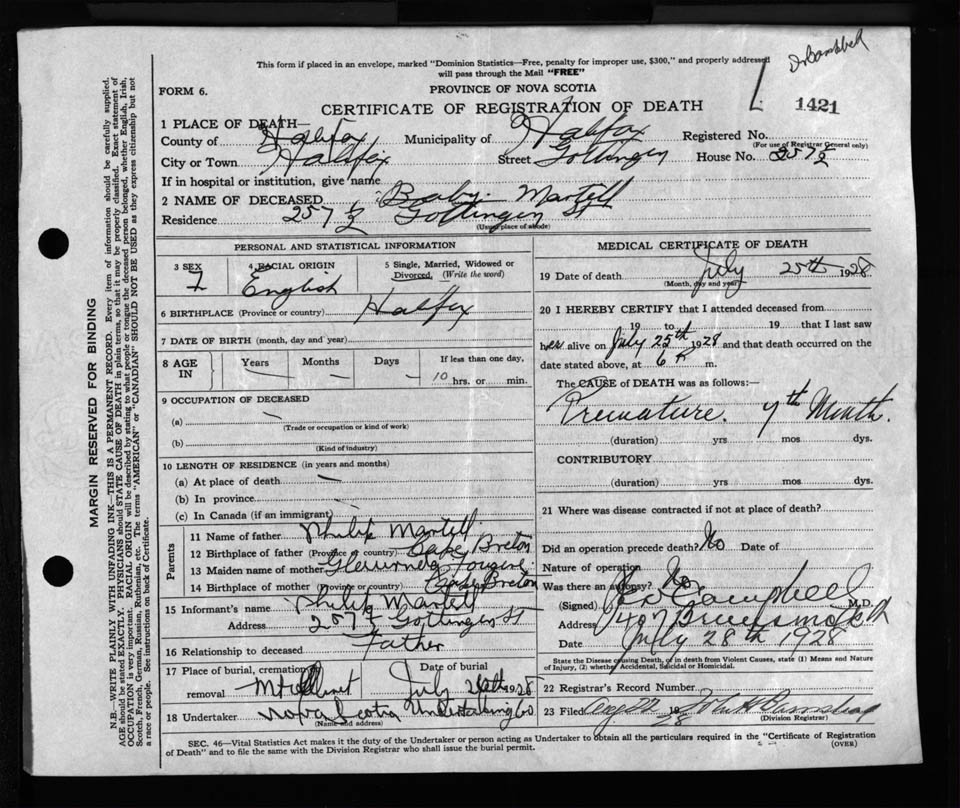 Dr Campbell
This form if placed in an envelope, marked "Dominion Statistics—Free, penalty for improper use, $300," and properly addressed
will pass through the Mail "FREE"
FORM 6.
PROVINCE OF NOVA SCOTIA
CERTIFICATE OF REGISTRATION OF DEATH
1421
1 PLACE OF DEATH—
County of Halifax Municipality of Halifax Registered No.
(For use of Registrar General only)
City or Town Halifax Street Gottingen House No. 257½
If in hospital or institution, give name
2 NAME OF DECEASED Baby Martell
Residence 257½ Gottingen St
(Usual place of abode)
PERSONAL AND STATISTICAL INFORMATION
3 SEX 4 RACIAL ORIGIN 5 Single, Married, Widowed or
Divorced. (Write the word)
F English
6 BIRTHPLACE (Province or country) Halifax
7 DATE OF BIRTH (month, day and year)
8 AGE IN Years Months Days If less than one day,
— — — 10 hrs. or min.
9 OCCUPATION OF DECEASED
(a) —
(Trade or occupation or kind of work)
(b)
(Kind of industry)
10 LENGTH OF RESIDENCE (in years and months)
(a) At place of death —
(b) In province —
(c) In Canada (if an immigrant) —
Parents
11 Name of father Philip Martell
12 Birthplace of father (Province or country) Cape Breton
13 Maiden name of mother
14 Birthplace of mother (Province or country) Cape Breton
15 Informant's name Philip Martell
Address 257½ Gottingen St
16 Relationship to deceased Father
17 Place of burial, cremation or Date of burial
removal Mt Olivet July 1928
18 Undertaker Nova Scotia Undertaking Co
(Name and address)
MEDICAL CERTIFICATE OF DEATH
19 Date of death July 25th 1928
(Month, day and year)
20 I HEREBY CERTIFY that I attended deceased from
19 to 19 that I last saw
her alive on July 25th 1928 and that death occurred on
date stated above, at 6 P m.
The CAUSE of DEATH was as follows:—
Premature. 7th Month.
(duration) yrs mos dys.
CONTRIBUTORY
(duration) yrs mos dys.
21 Where was disease contracted if not at place of death?
Did an operation precede death? No Date of
Nature of operation
Was there an autopsy? No
(Signed) Campbell M.D.
Address 407 Brunswick St
Date July 28th 1928
State the Disease causing Death, or in death from Violent Causes, state (1) Means and Nature
of Injury, (2) whether Accidental, Suicidal or Homicidal.
22 Registrar's Record Number
23 Filed 1928
(Division Registrar)
SEC. 46—Vital Statistics Act makes it the duty of the Undertaker or person acting as Undertaker to obtain all the particulars required in the "Certificate of Registration
of Death" and to file the same with the Division Registrar who shall issue the burial permit.
(OVER)
MARGIN RESERVED FOR BINDING
N.B.—WRITE PLAINLY WITH UNFADING INK—THIS IS A PERMANENT RECORD. Every item of information should be carefully supplied.
AGE should be stated EXACTLY. PHYSICIANS should STATE CAUSE OF DEATH in plain terms, so that it may be properly classified. Exact statement of
OCCUPATION is very important. RACIAL ORIGIN will be described by stating to what people or tongue the deceased person belonged, whether English, Irish,
Scotch, French, German, Russian, Ruthenian, etc. The terms "AMERICAN" or "CANADIAN" SHOULD NOT BE USED as they express citizenship but not
a race or people. See instructions on back of Certificate.